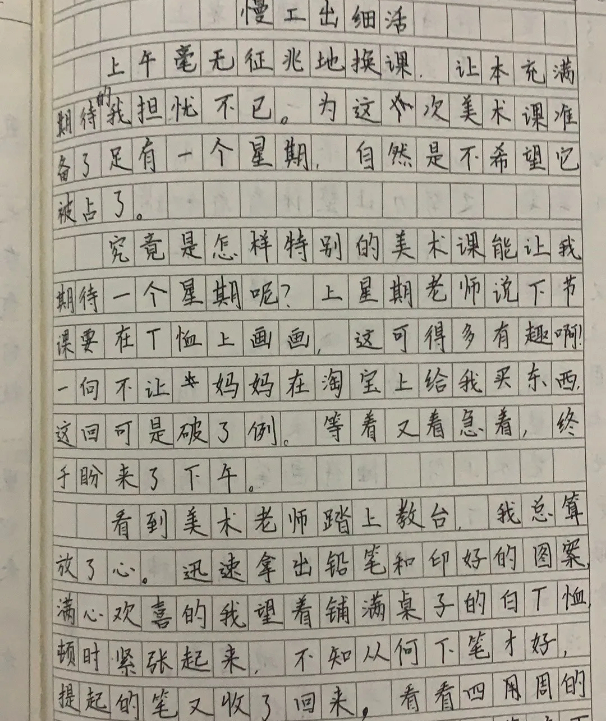 慢工出细活
上午毫无征兆地换课，让本充满
期待的我担忧不已。为这次美术课准
备了足有一个星期，自然是不希望它
被占了。
究竟是怎样特别的美术课能让我
期待一个星期呢？上星期老师说下节
课要在T恤上画画，这可得多有趣啊！
一向不让妈妈在淘宝上给我买东西，
这回可是破了例。等着又看急着，终
于盼来了下午。
看到美术老师踏上教台，我总算
放了心。迅速拿出铅笔和印好的图案，
满心欢喜的我望着铺满桌子的白T恤，
顿时紧张起来，不知从何下笔才好，
提起的笔又收了回来，看看四周的